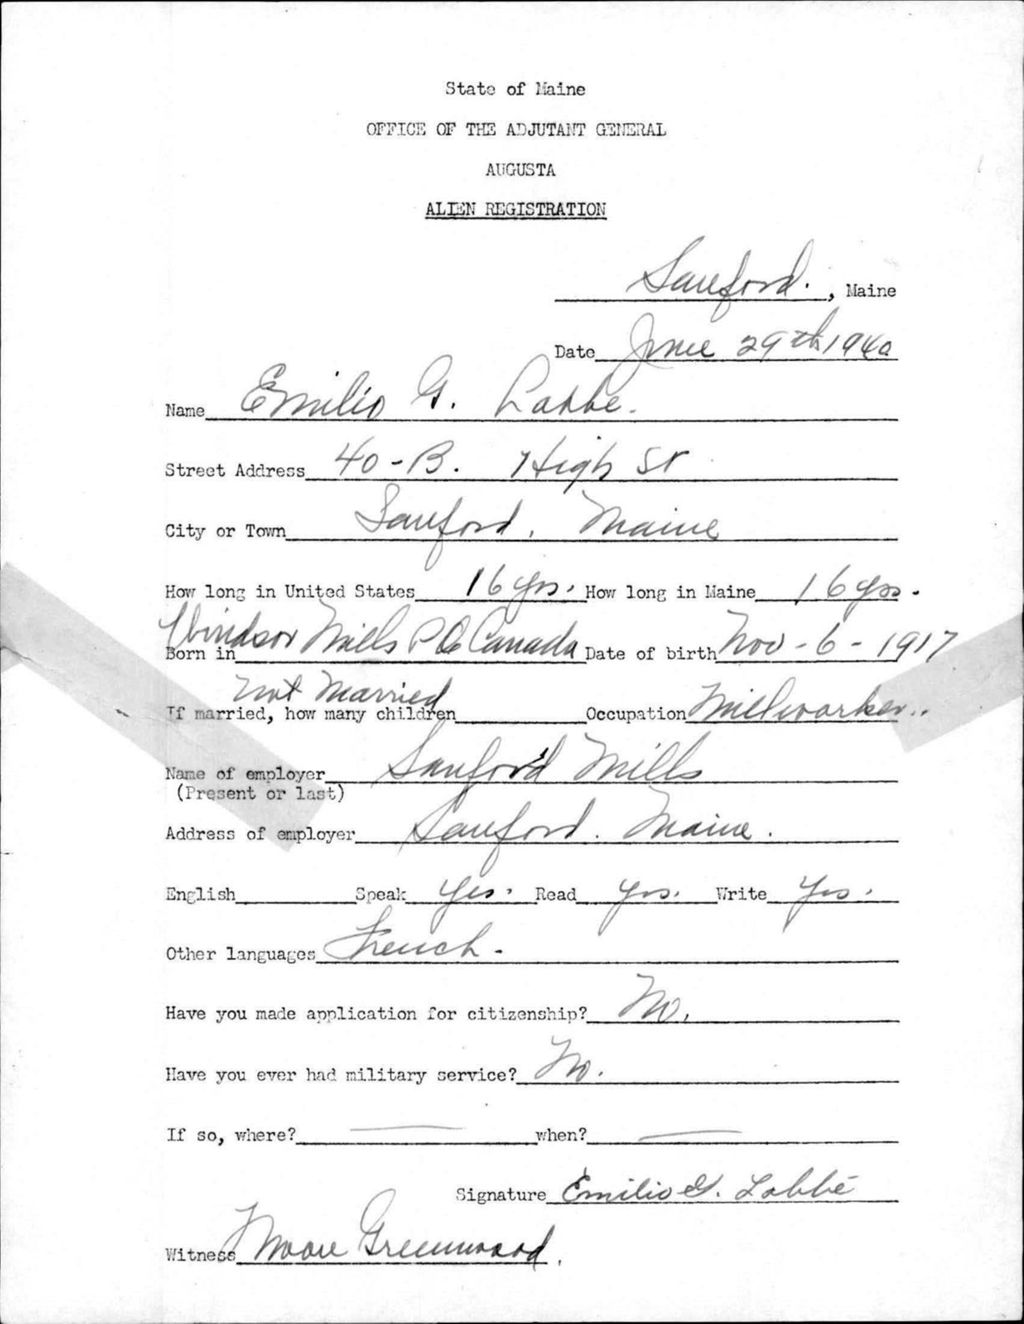 State of Maine
OFFICE OF THE ADJUTANT GENERAL
AUGUSTA
ALIEN REGISTRATION
Sanford., Maine
Date June 29th 1940
Name Emilio G. Labbe.
Street Address 40-B. High St
City or Town Sanford, Maine
How long in United States 16 yrs. How long in Maine 16 yrs.
Born in Windsor Mills P Q Canada Date of birth Nov-6-1917
not Married
If married, how many children Occupation Millworker..
Name of employer Sanford Mills
(Present or last)
Address of employer Sanford. Maine.
English Speak Yes. Read Yes. Write Yes.
Other languages French.
Have you made application for citizenship? No.
Have you ever had military service? No.
If so, where? when?
Signature Emilio G. Labbé
Witness Moore Greenwood.